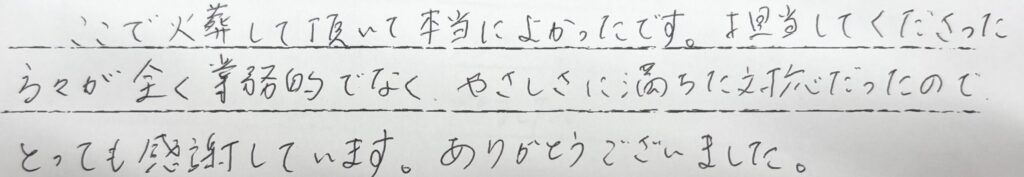 ここで火葬して頂いて本当によかったです。担当してくださった
方々が全く業務的でなく、やさしさに満ちた対応だったので
とっても感謝しています。ありがとうございました。